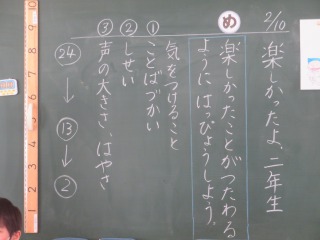 2/10
楽しかったよ、二年生
め
楽しかったことがつたわる
ようにはっぴょうしよう。
気をつけること
① ことばづかい
② しせい
③ 声の大きさ、はやさ
24 → 13 → 2